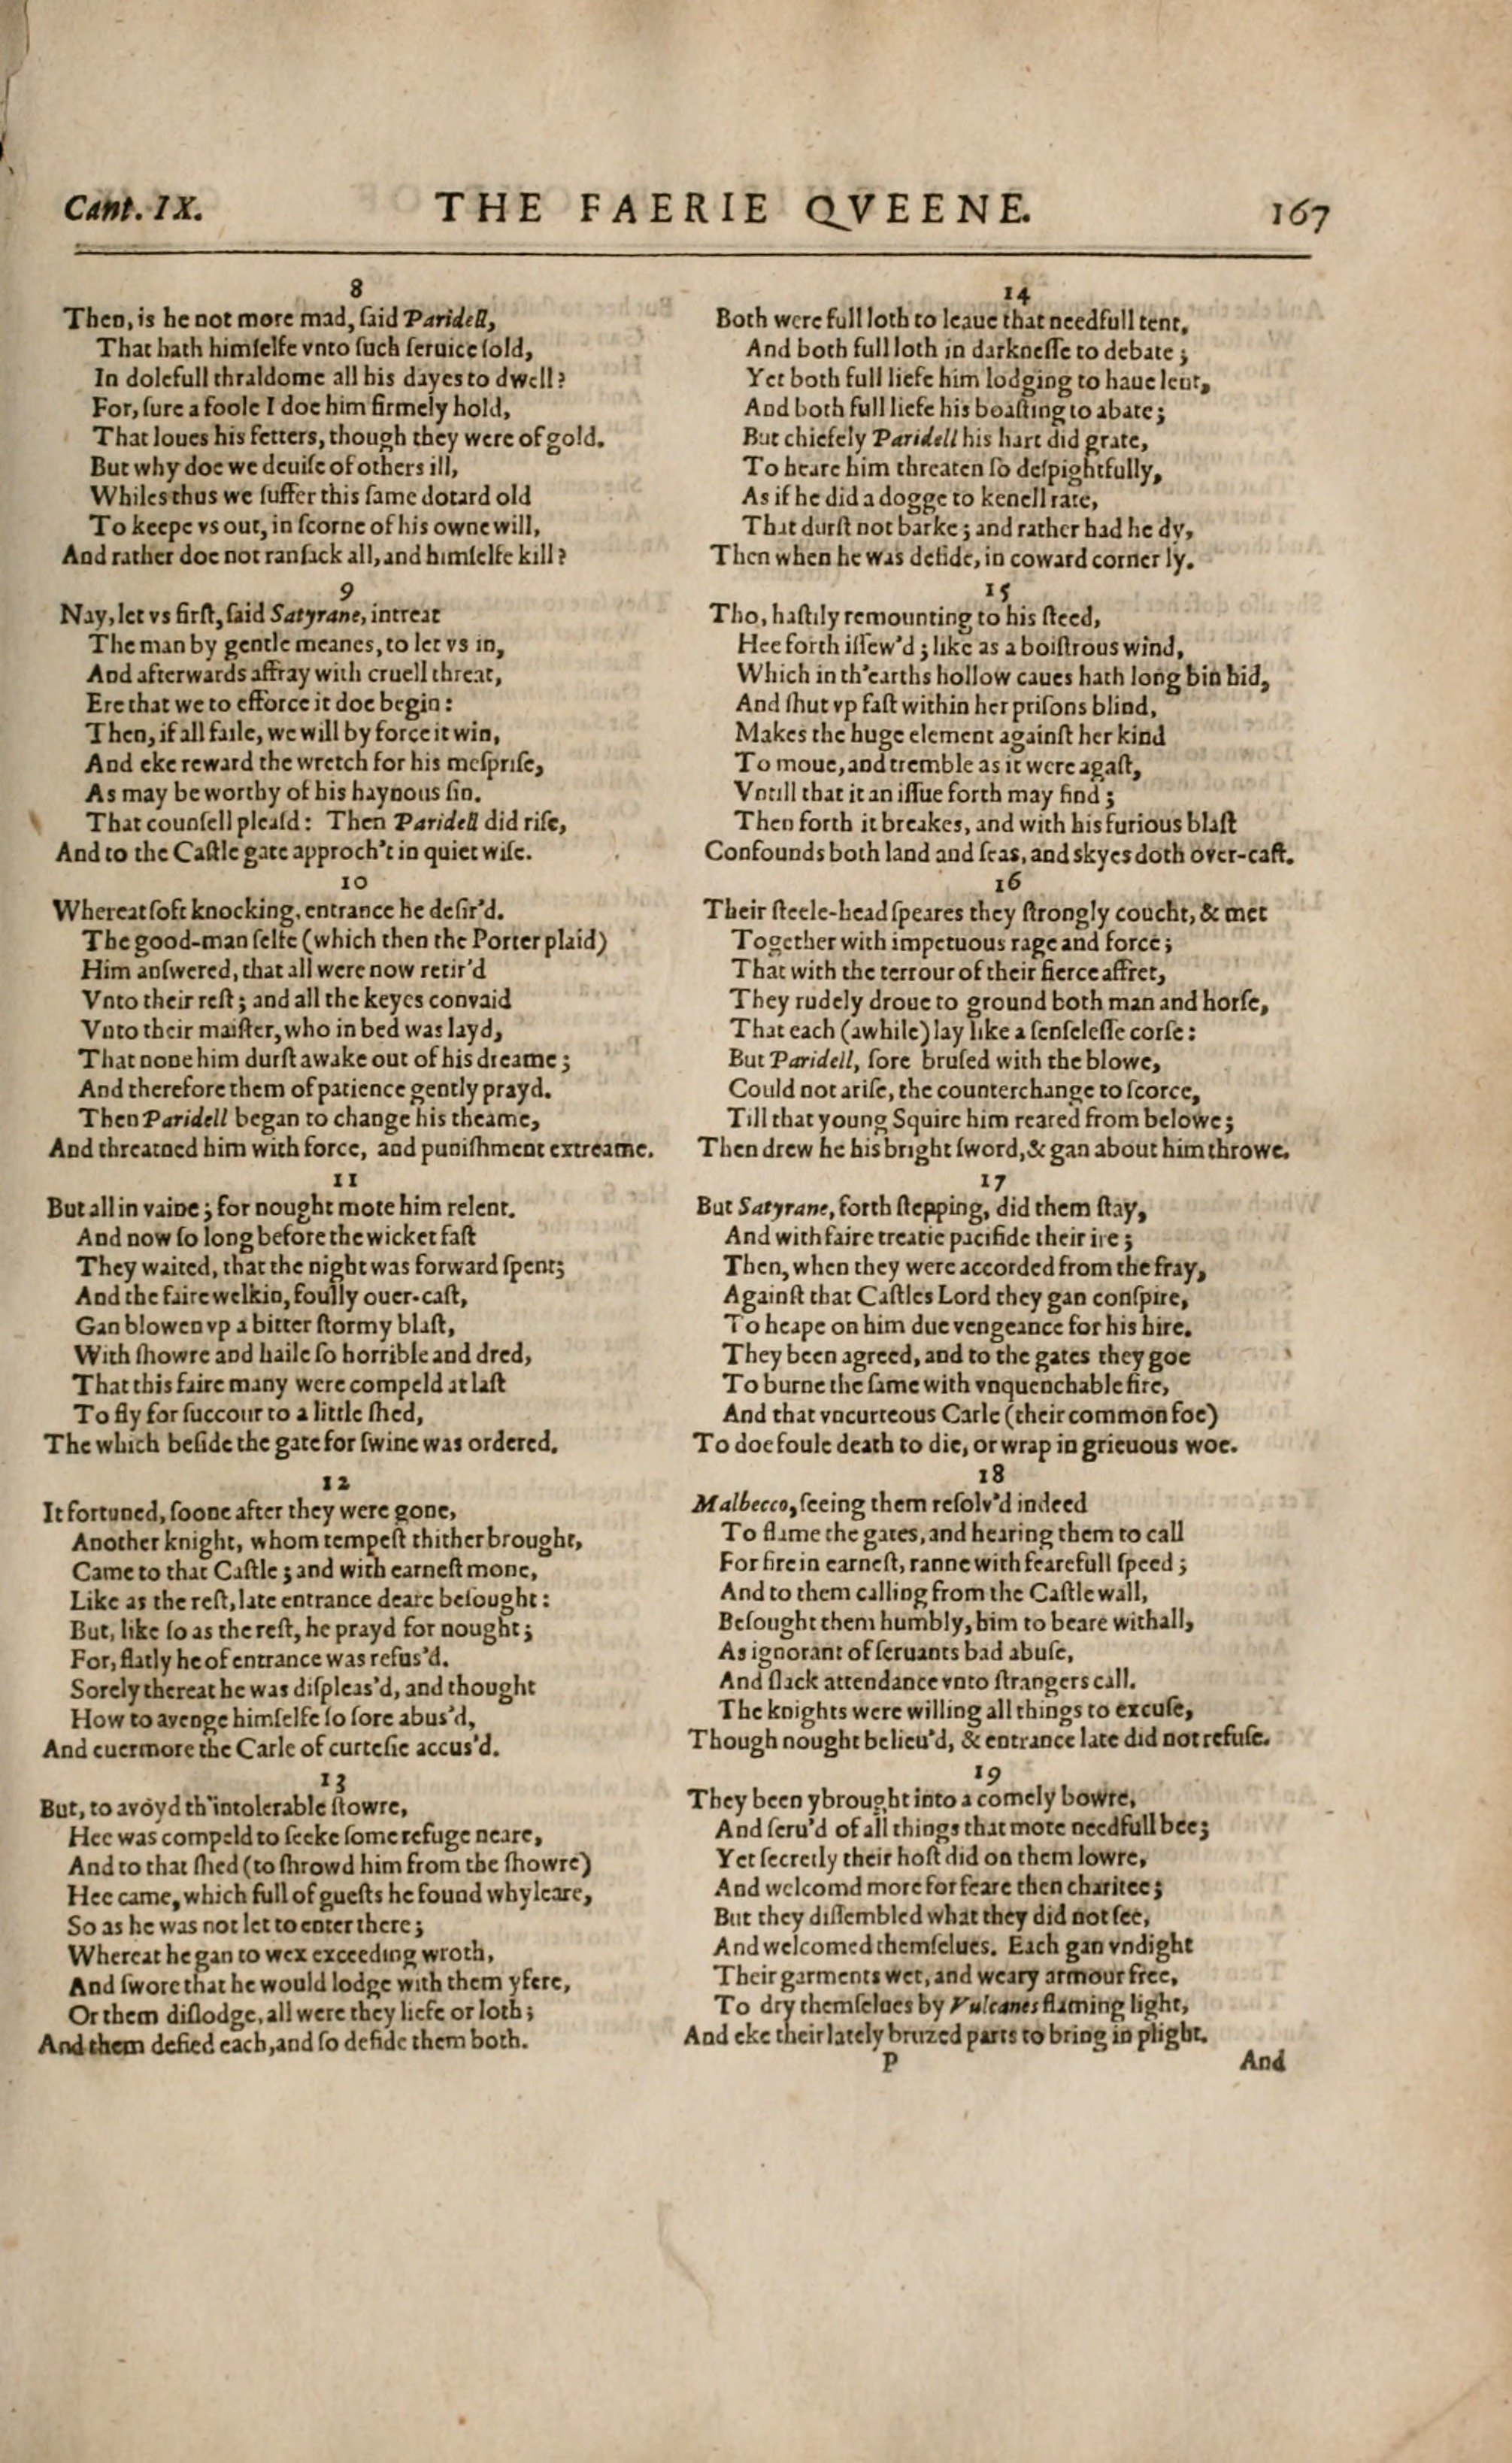 Cant. IX.
THE FAERIE QVEENE.
167
8
Then, is he not more mad, ſaid Paridell,
That hath himſelfe vnto ſuch ſeruice ſold,
In dolefull thraldome all his dayes to dwell?
For, ſure a foole I doe him firmely hold,
That loues his fetters, though they were of gold.
But why doe we deuiſe of others ill,
Whiles thus we ſuffer this ſame dotard old
To keepe vs out, in ſcorne of his owne will,
And rather doe not ranſack all, and himſelfe kill?
9
Nay, let vs firſt, ſaid Satyrane, intreat
The man by gentle meanes, to let vs in,
And afterwards affray with cruell threat,
Ere that we to efforce it doe begin:
Then, if all faile, we will by force it win,
And eke reward the wretch for his meſpriſe,
As may be worthy of his haynous ſin.
That counſell pleaſd: Then Paridell did riſe,
And to the Caſtle gate approch't in quiet wiſe.
10
Whereat ſoft knocking, entrance he deſir'd.
The good-man ſelfe (which then the Porter plaid)
Him anſwered, that all were now retir'd
Vnto their reſt; and all the keyes convaid
Vnto their maiſter, who in bed was layd,
That none him durſt awake out of his dreame;
And therefore them of patience gently prayd.
Then Paridell began to change his theame,
And threatned him with force, and puniſhment extreame.
11
But all in vaine; for nought mote him relent.
And now ſo long before the wicket faſt
They waited, that the night was forward ſpent;
And the faire welkin, foully ouer-caſt,
Gan blowen vp a bitter ſtormy blaſt,
With ſhowre and haile ſo horrible and dred,
That this faire many were compeld at laſt
To fly for ſuccour to a little ſhed,
The which beſide the gate for ſwine was ordered.
12
It fortuned, ſoone after they were gone,
Another knight, whom tempeſt thither brought,
Came to that Caſtle; and with earneſt mone,
Like as the reſt, late entrance deare beſought:
But, like ſo as the reſt, he prayd for nought;
For, flatly he of entrance was refus'd.
Sorely thereat he was diſpleas'd, and thought
How to avenge himſelfe ſo ſore abus'd,
And euermore the Carle of curteſie accus'd.
13
But, to avoyd th'intolerable ſtowre,
Hee was compeld to ſeeke ſome refuge neare,
And to that ſhed (to ſhrowd him from the ſhowre)
Hee came, which full of gueſts he found whyleare,
So as he was not let to enter there;
Whereat he gan to wex exceeding wroth,
And ſwore that he would lodge with them yfere,
Or them diſlodge, all were they liefe or loth;
And them defied each, and ſo defide them both.
14
Both were full loth to leaue that needfull tent,
And both full loth in darkneſſe to debate;
Yet both full liefe him lodging to haue lent,
And both full liefe his boaſting to abate;
But chiefely Paridell his hart did grate,
To heare him threaten ſo deſpightfully,
As if he did a dogge to kenell rate,
That durſt not barke; and rather had he dy,
Then when he was defide, in coward corner ly.
15
Tho, haſtily remounting to his ſteed,
Hee forth iſſew'd; like as a boiſtrous wind,
Which in th'earths hollow caues hath long bin hid,
And ſhut vp faſt within her priſons blind,
Makes the huge element againſt her kind
To moue, and tremble as it were agaſt,
Vntill that it an iſſue forth may find;
Then forth it breakes, and with his furious blaſt
Confounds both land and ſeas, and skyes doth over-caſt.
16
Their ſteele-head ſpeares they ſtrongly coucht, & met
Together with impetuous rage and force;
That with the terrour of their fierce affret,
They rudely droue to ground both man and horſe,
That each (awhile) lay like a ſenſeleſſe corſe:
But Paridell, ſore bruſed with the blowe,
Could not ariſe, the counterchange to ſcorce,
Till that young Squire him reared from belowe;
Then drew he his bright ſword, & gan about him throwe.
17
But Satyrane, forth ſtepping, did them ſtay,
And with faire treatie pacifide their ire;
Then, when they were accorded from the fray,
Againſt that Caſtles Lord they gan conſpire,
To heape on him due vengeance for his hire.
They been agreed, and to the gates they goe
To burne the ſame with vnquenchable fire,
And that vncurteous Carle (their common foe)
To doe foule death to die, or wrap in grieuous woe.
18
Malbecco, ſeeing them reſolv'd indeed
To flame the gates, and hearing them to call
For fire in earneſt, ranne with fearefull ſpeed;
And to them calling from the Caſtle wall,
Beſought them humbly, him to beare withall,
As ignorant of ſeruants bad abuſe,
And ſlack attendance vnto ſtrangers call.
The knights were willing all things to excuſe,
Though nought belieu'd, & entrance late did not refuſe.
19
They been ybrought into a comely bowre,
And ſeru'd of all things that mote needfull bee;
Yet ſecretly their hoſt did on them lowre,
And welcomd more for feare then charitee;
But they diſſembled what they did not ſee,
And welcomed themſelues. Each gan vndight
Their garments wet, and weary armour free,
To dry themſelues by Vulcanes flaming light,
And eke their lately bruzed parts to bring in plight.
P
And